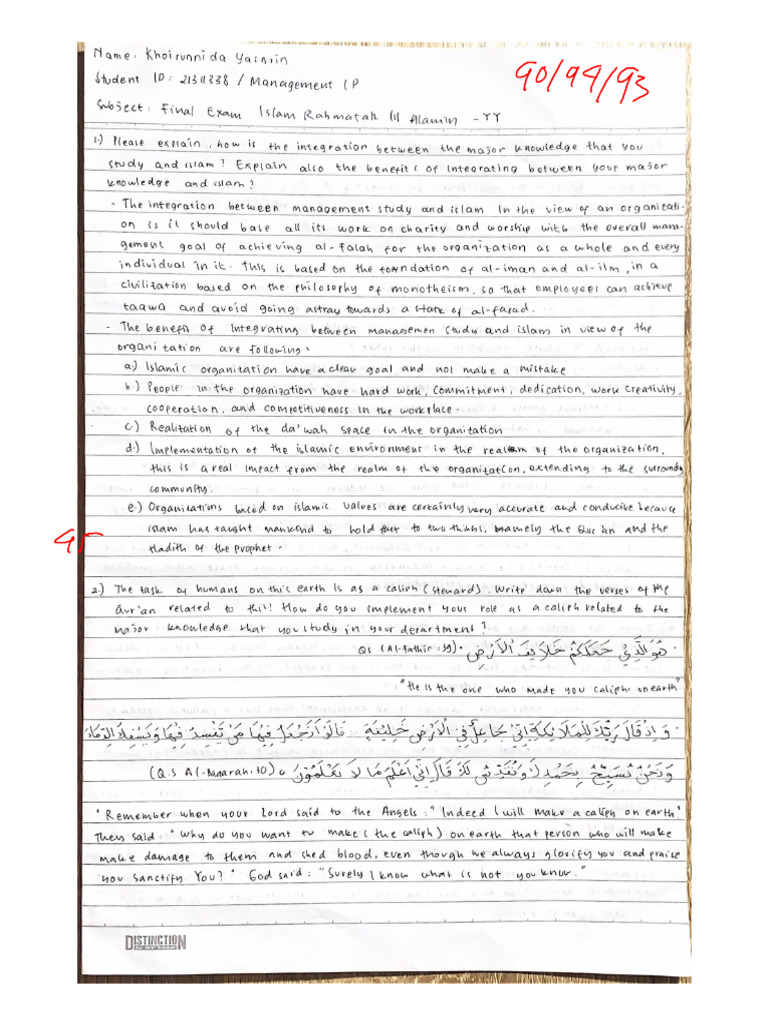 Name: Khoirunnida Yasmin
90/94/93
Student ID: 21311338 / Management IP
Subject: Final Exam Islam Rahmatah lil Alamin - YY
1.) Please explain, how is the integration between the major knowledge that you
study and islam? Explain also the benefits of Integrating between your major
knowledge and islam?
- The integration between management study and islam In the view of an organitati-
on is it should base all its work on charity and worship with the overall mana-
gement goal of achieving al-falah for the organization as a whole and every
individual in it. this is based on the foundation of al-iman and al-ilm, in a
civilization based on the philosophy of monotheism, so that employees can achieve
taqwa and avoid going astray towards a state of al-fasad.
- The benefit of Integrating between managemen study and islam in view of the
organitation are following:
a.) Islamic organitation have a clear goal and not make a mistake
b.) People in the organization have hard work, commitment, dedication, work creativity,
cooperation, and competitiveness in the workplace.
c.) Realitation of the da'wah space in the organitation
d.) Implementation of the islamic environment in the realm of the organization,
this is a real impact from the realm of the organization, extending to the surroundy
community.
e.) Organizations based on islamic values are certainly very accurate and conducive because
islam has taught mankind to hold fast to two thinhs, namely the Qur'an and the
Hadith of the prophet.
95
2.) The task of humans on this earth is as a caliph (steward). Write down the verses of the
Qur'an related to this! How do you implement your role as a caliph related to the
major knowledge that you study in your department?
هُوَ الَّذِيْ جَعَلَكُمْ خَلَايِفَ الْاَرْضِ. (Qs Al-Fathir: 39)
"He is the one who made you caliphs on earth"
وَاِذْ قَالَ رَبُّكَ لِلْمَلَائِكَةِ اِنِّيْ جَاعِلٌ فِى الْاَرْضِ خَلِيْفَةً قَالُوْا اَتَجْعَلُ فِيْهَا مَنْ يُّفْسِدُ فِيْهَا وَيَسْفِكُ الدِّمَاءَ
وَنَحْنُ نُسَبِّحُ بِحَمْدِكَ وَنُقَدِّسُ لَكَ قَالَ اِنِّيْ اَعْلَمُ مَا لَا تَعْلَمُوْنَ (Q.S Al-Baqarah: 30)
"Remember when your Lord said to the Angels: "Indeed I will make a caliph on earth"
They said: "Why do you want to make (the caliph) on earth that person who will make
make damage to them and shed blood, even though we always glorify you and praise
you sanctify You?" God said: "Surely I know what is not you know."
DISTINCTION